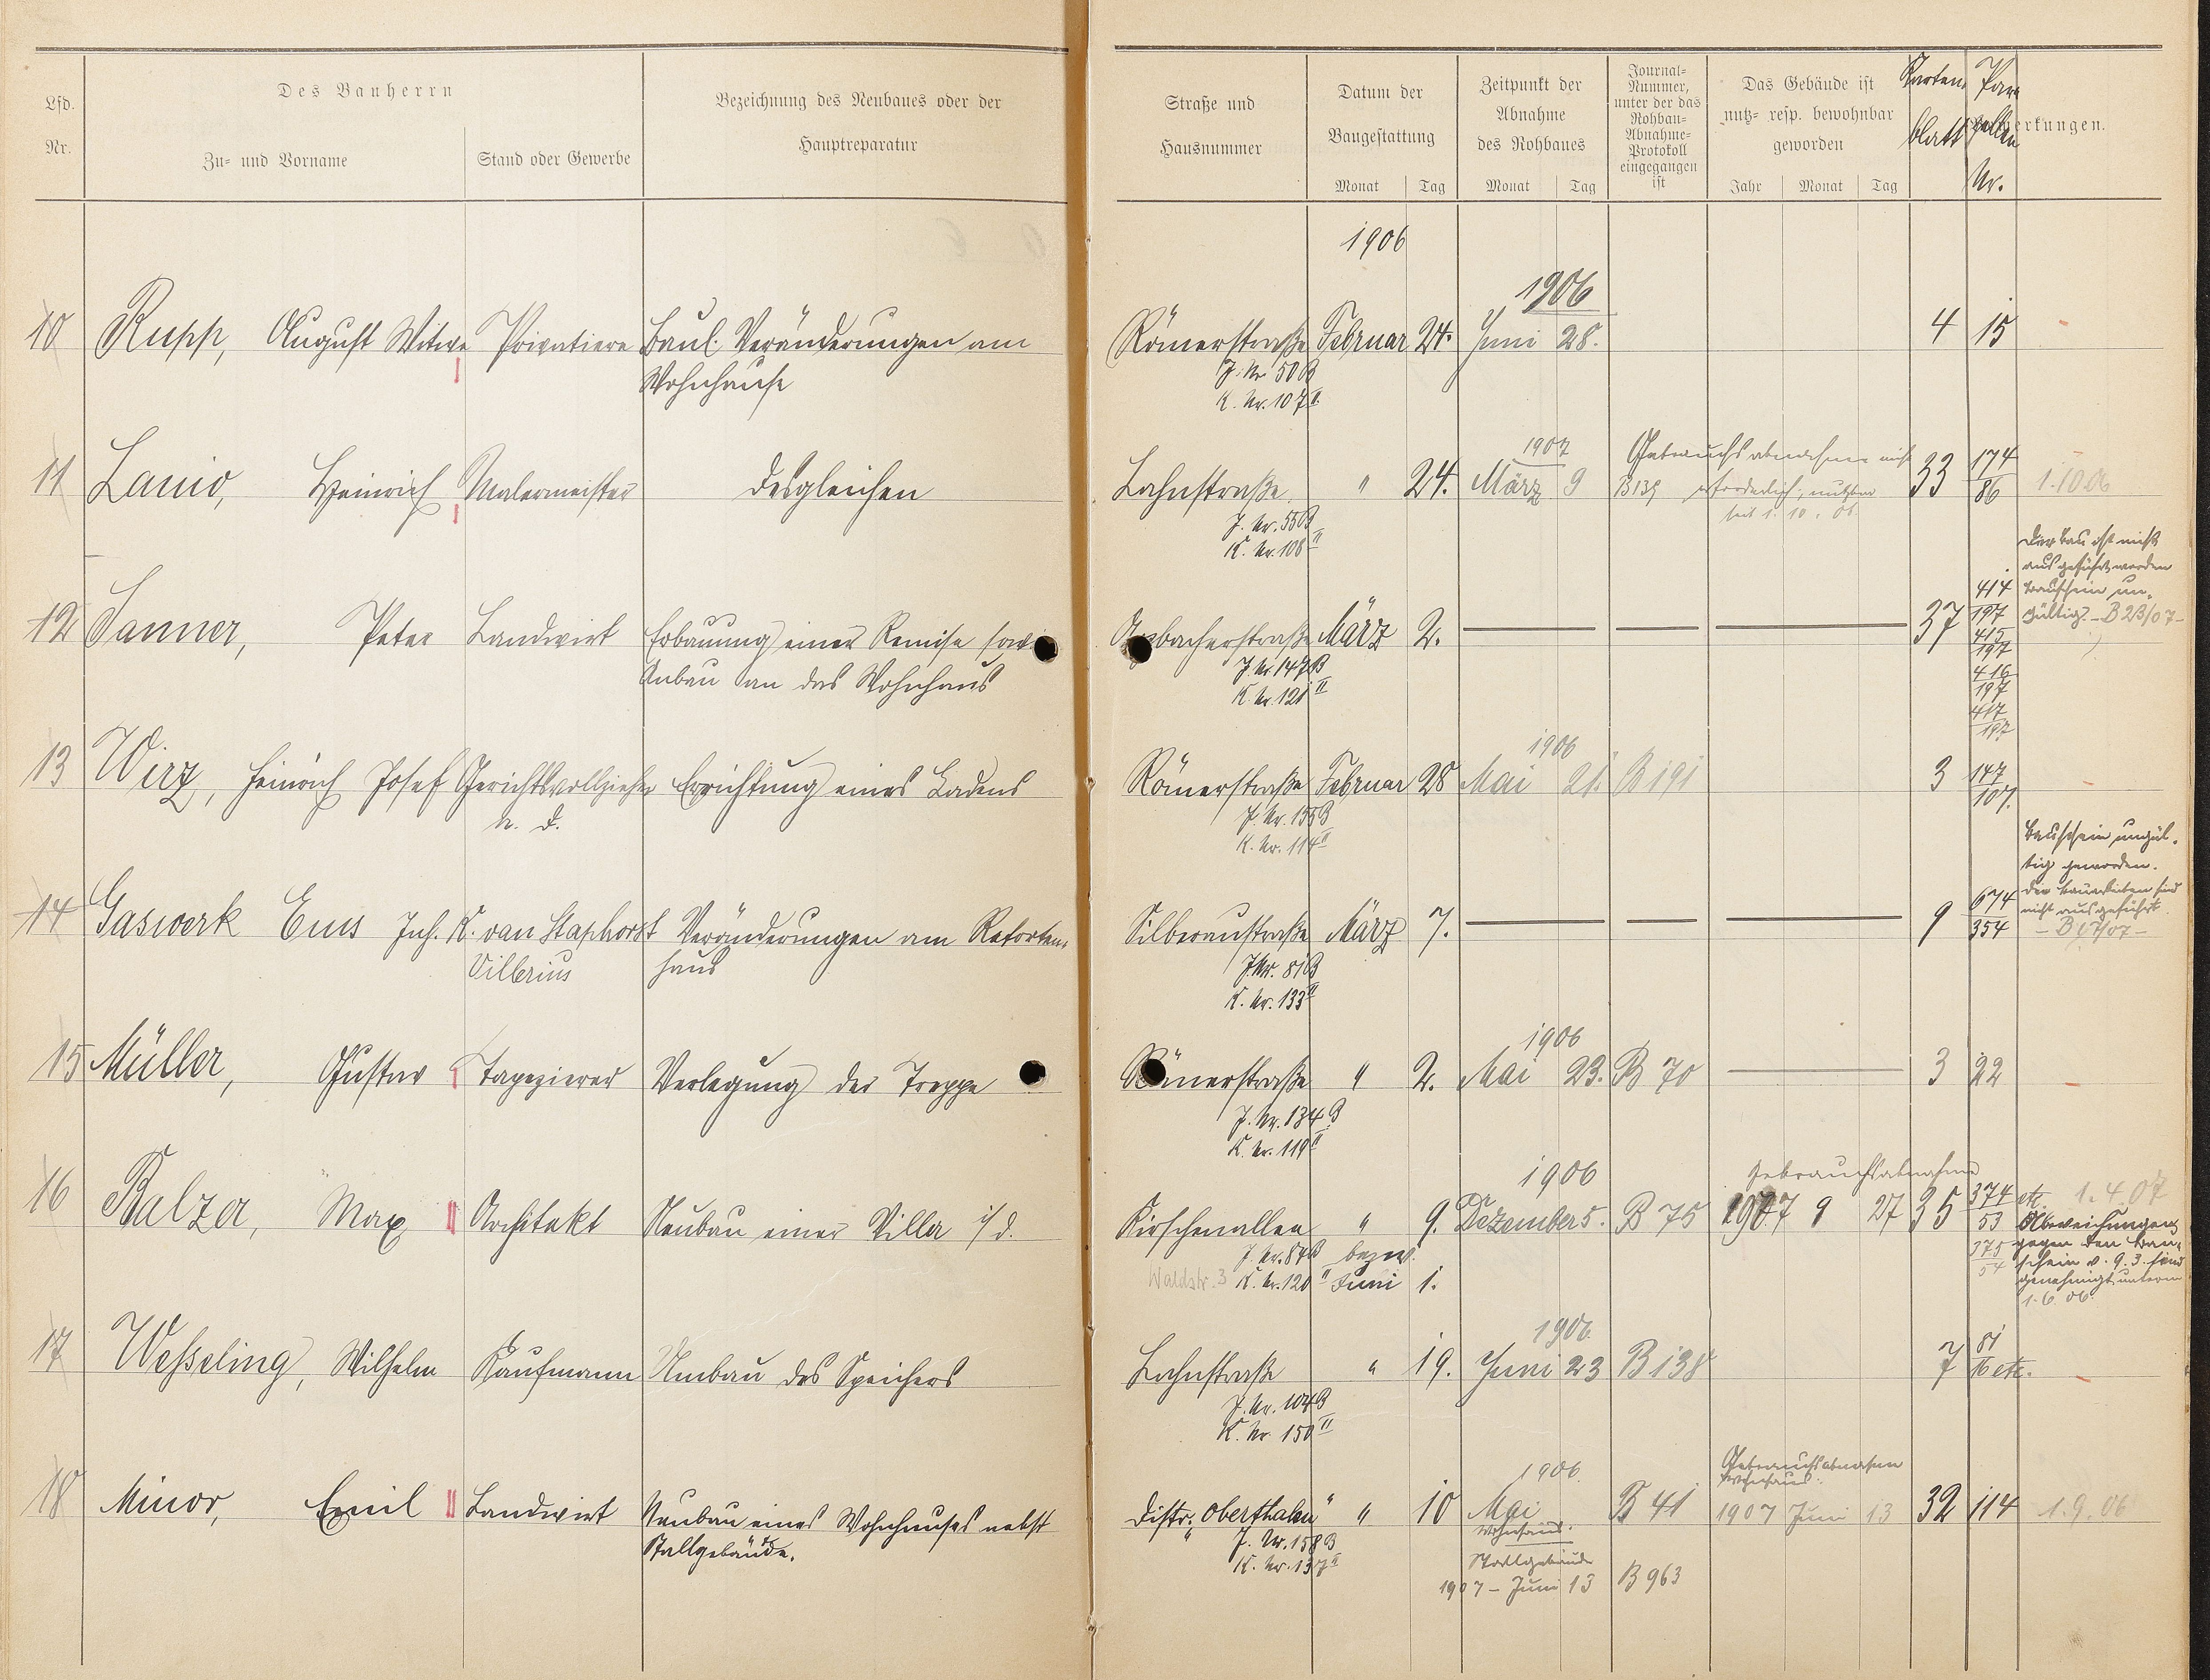 Lfd.
Nr.
Des Bauherrn
Zu- und Vorname
Stand oder Gewerbe
Bezeichnung des Neubaues oder der
Hauptreparatur
Straße und
Hausnummer
Datum der
Baugestattung
Monat Tag
Zeitpunkt der
Abnahme
des Rohbaues
Monat Tag
Journal-
Nummer,
unter der das
Rohbau-
Abnahme-
Protokoll
eingegangen
ist
Das Gebäude ist
nutz- resp. bewohnbar
geworden
Jahr Monat Tag
Karten-
blatt
Par-
zellen
Nr.
1906
1906
10 Rupp, August Witwe Privatiere Baul. Veränderungen am Römerstraße Februar 24. Juni 28. 4 15
Wohnhause
J. Nr 50 B
K. Nr. 107 II
1907 Gebrauchsabnahme nicht
11 Lanio, Heinrich Malermeister desgleichen Lahnstraße " 24. März 9 B 139 erforderlich, nutzbar 33 174/86 1.10.06
seit 1. 10. 06.
J. Nr. 55 B
K. Nr. 108 II
Der Bau ist nicht
ausgeführt worden
Bauschein un-
gültig. - B 23/07 -
12 Sanner, Peter Landwirt Erbauung einer Remise sowie Arzbacherstraße März 2. 37 414/197
Anbau an das Wohnhaus
415/197
416/197
417/197
J. Nr 147 B
K. Nr. 121 II
1906
13 Wirz, Heinrich Josef Gerichtsvollzieher Errichtung eines Ladens Römerstraße Februar 28 Mai 21. B 191 3 147/107.
a. D.
J. Nr. 135 B
K. Nr. 114 II
Bauschein ungül-
tig geworden.
Die Bauarbeiten sind
nicht ausgeführt.
- B 67/07 -
14 Gaswerk Ems Inh. K. van Staphorst Veränderungen am Retorten- Silberaustraße März 7. 9 674/354
Villerius haus
J. Nr. 81 B
K. Nr. 133 II
1906
15 Müller, Gustav Tapezierer Verlegung der Treppe Römerstraße " 2. Mai 23. B 70 3 22
J. Nr. 134 B
K. Nr. 119 II
1906 Gebrauchsabnahme
16 Balzer, Max Architekt Neubau einer Villa i/d. Kirschenallee " 9. Dezember 5. B 75 1907 9 27 35 374/53 etc. 1.4.07
375/54
Abweichungen
gegen den Bau-
schein v. 9.3. sind
genehmigt unterm
1. 6. 06.
J. Nr. 87 B bezw.
Waldstr. 3 K. Nr. 120 II Juni 1.
1906.
17 Wesseling, Wilhelm Kaufmann Umbau des Speichers Lahnstraße " 19. Juni 23 B 138 7 81/16 etc.
J. Nr. 104 B
K. Nr 150 II
1906. Gebrauchsabnahme
Wohnhaus.
18 Minor, Emil Landwirt Neubau eines Wohnhauses nebst Distr. „Oberthalen“ " 10 Mai B 41 1907 Juni 13 32 114 1.9.06
Stallgebäude.
Wohnhaus.
J. Nr. 158 B
K. Nr. 137 II
Stallgebäude
1907 - Juni 13 B 963